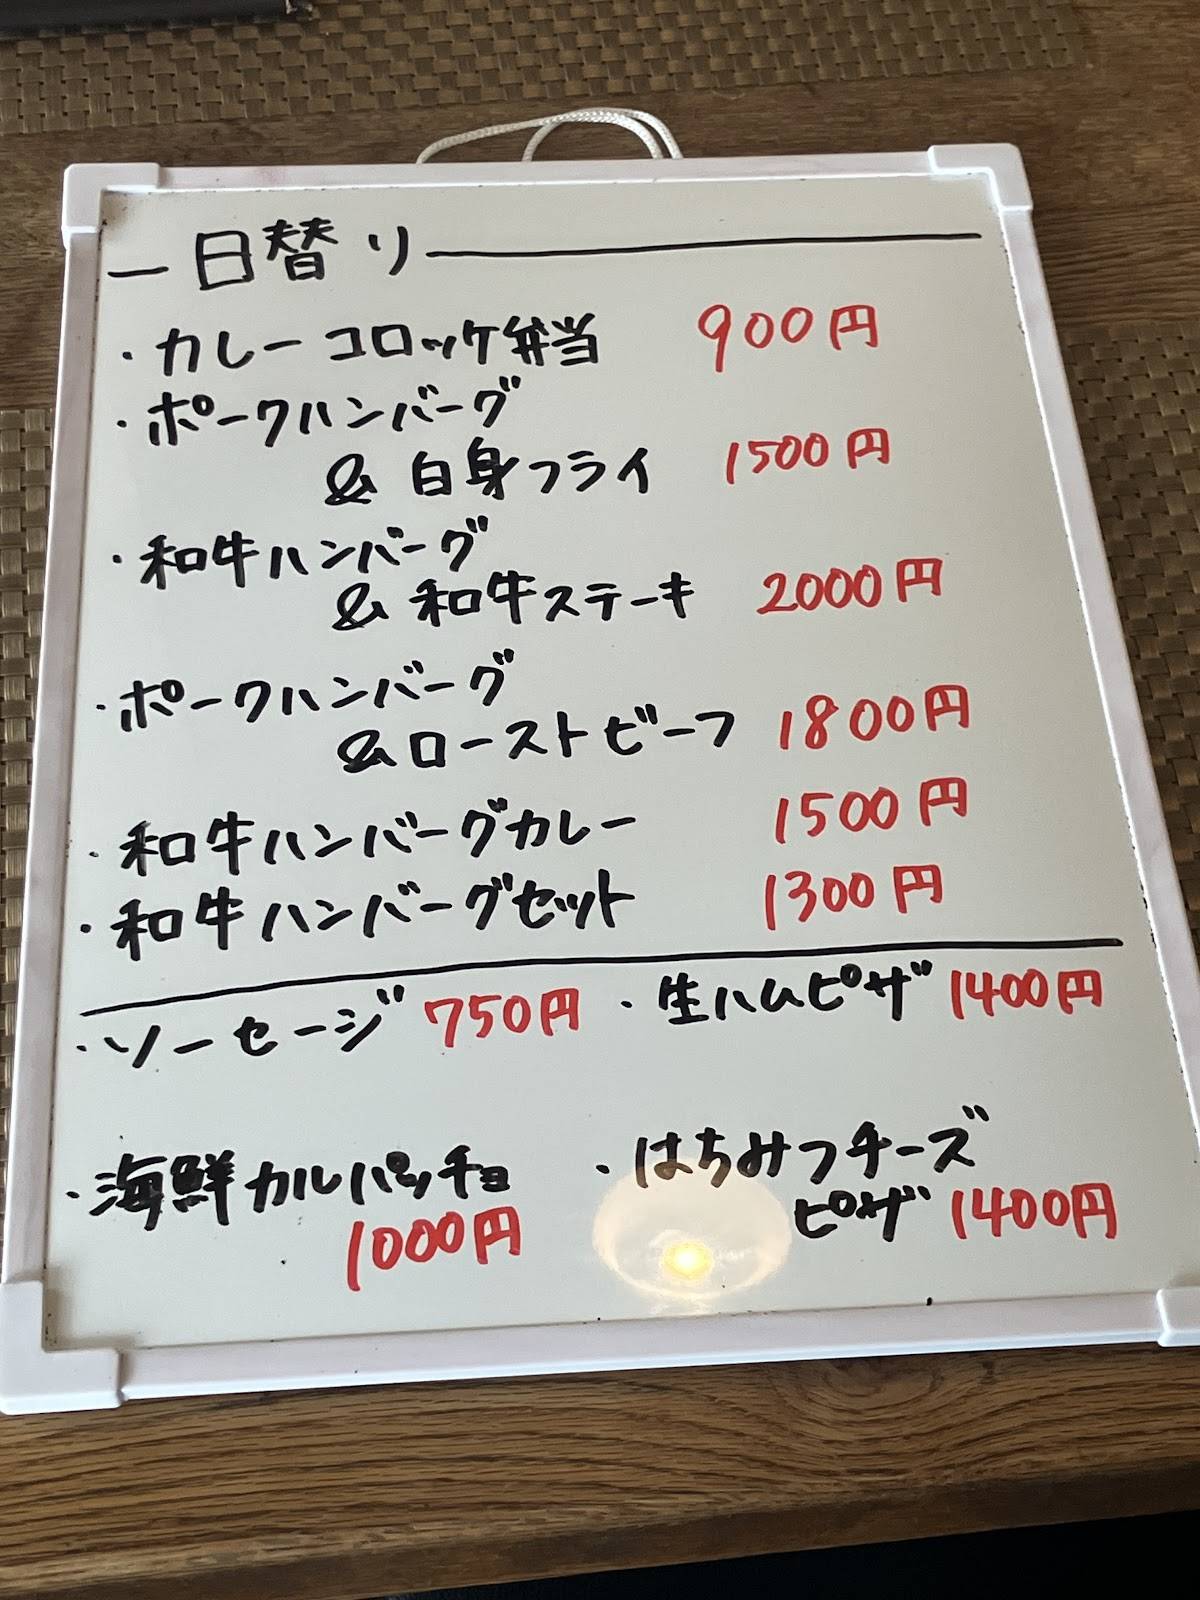 日替り
・カレーコロッケ弁当 900円
・ポークハンバーグ
& 白身フライ 1500円
・和牛ハンバーグ
& 和牛ステーキ 2000円
・ポークハンバーグ
&ローストビーフ 1800円
・和牛ハンバーグカレー 1500円
・和牛ハンバーグセット 1300円
・ソーセージ 750円 ・生ハムピザ 1400円
・海鮮カルパッチョ
1000円
・はちみつチーズ
ピザ 1400円